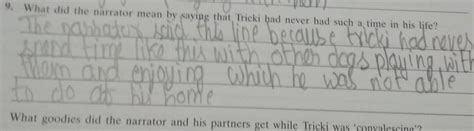 9. What did the narrator mean by saying that Tricki had never had such a time in his life?
The narrator said this line because tricki had never
spend time like this with other dogs playing with
them and enjoying which he was not able
to do at his home
What goodies did the narrator and his partners get while Tricki was 'convalescing'?